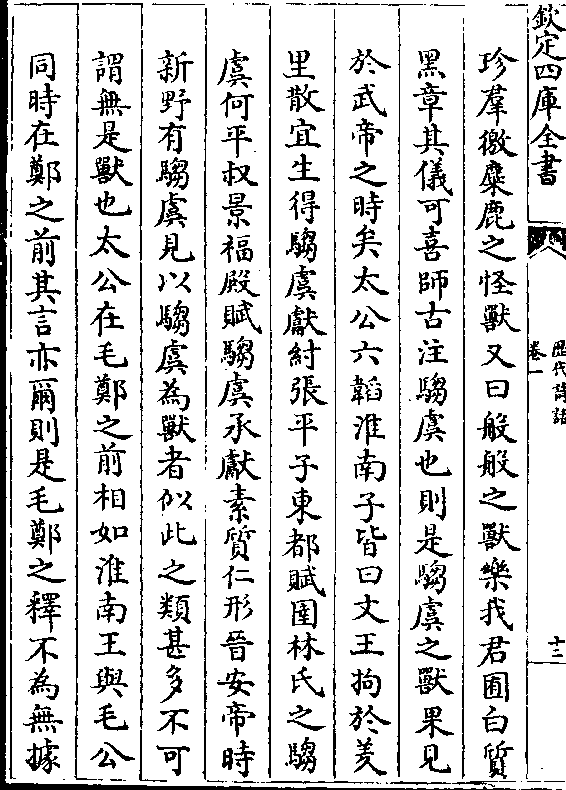 欽定四庫全書
歷代詩話
卷一
十三
珍羣徼麋鹿之怪獸又曰般般之獸樂我君囿白質
黑章其儀可喜師古注騶虞也則是騶虞之獸果見
於武帝之時矣太公六韜淮南子皆曰文王拘於羑
里散宜生得騶虞獻紂張平子東都賦圉林氏之騶
虞何平叔景福殿賦騶虞承獻素質仁形晉安帝時
新野有騶虞見以騶虞為獸者似此之類甚多不可
謂無是獸也太公在毛鄭之前相如淮南王與毛公
同時在鄭之前其言亦爾則是毛鄭之釋不為無據